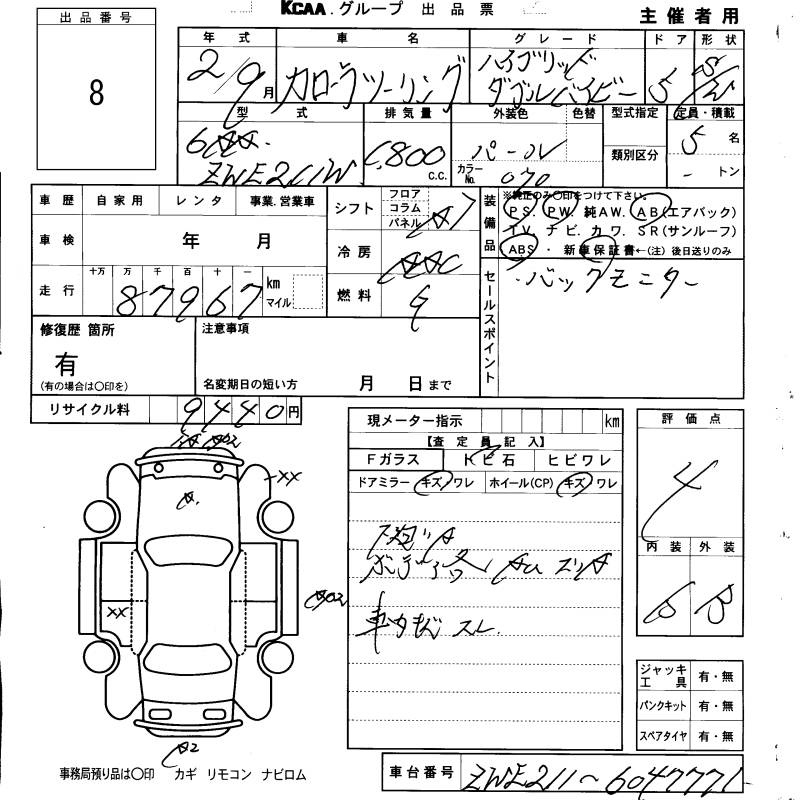 KCAA.グループ 出品票
主催者用
出品番号
8
年式 車名 グレード ドア 形状
2/9月 カローラツーリング ハイブリッド
ダブルバイビー 5 S/W
型式 排気量 外装色 色替 型式指定 定員・積載
6AA-
ZWE211W 1,800 c.c. パール
カラーNo. 070
類別区分
5名
- トン
車歴 自家用 レンタ 事業.営業車
車検 年 月
走行 十万 万 千 百 十 一
87967 km マイル
シフト フロア コラム パネル AT
冷房 AAC
燃料 G
装備品
※純正のみ〇印をつけて下さい。
PS. PW. 純AW. AB(エアバック)
TV. ナビ. カワ. SR(サンルーフ)
ABS ・ 新車保証書←(注) 後日送りのみ
セールスポイント
・バックモニター
修復歴 箇所
有
(有の場合は〇印を)
注意事項
名変期日の短い方 月 日まで
リサイクル料 9440円
現メーター指示 km
【査定員記入】
Fガラス トビ石 ヒビワレ
ドアミラー キズ/ワレ ホイール(CP) キズ/ワレ
車内キズ スレ
評価点
4
内装 外装
B B
XX
XX
A2
ジャッキ工具 有・無
パンクキット 有・無
スペアタイヤ 有・無
事務局預り品は〇印 カギ リモコン ナビロム
車台番号 ZWE211~6047771